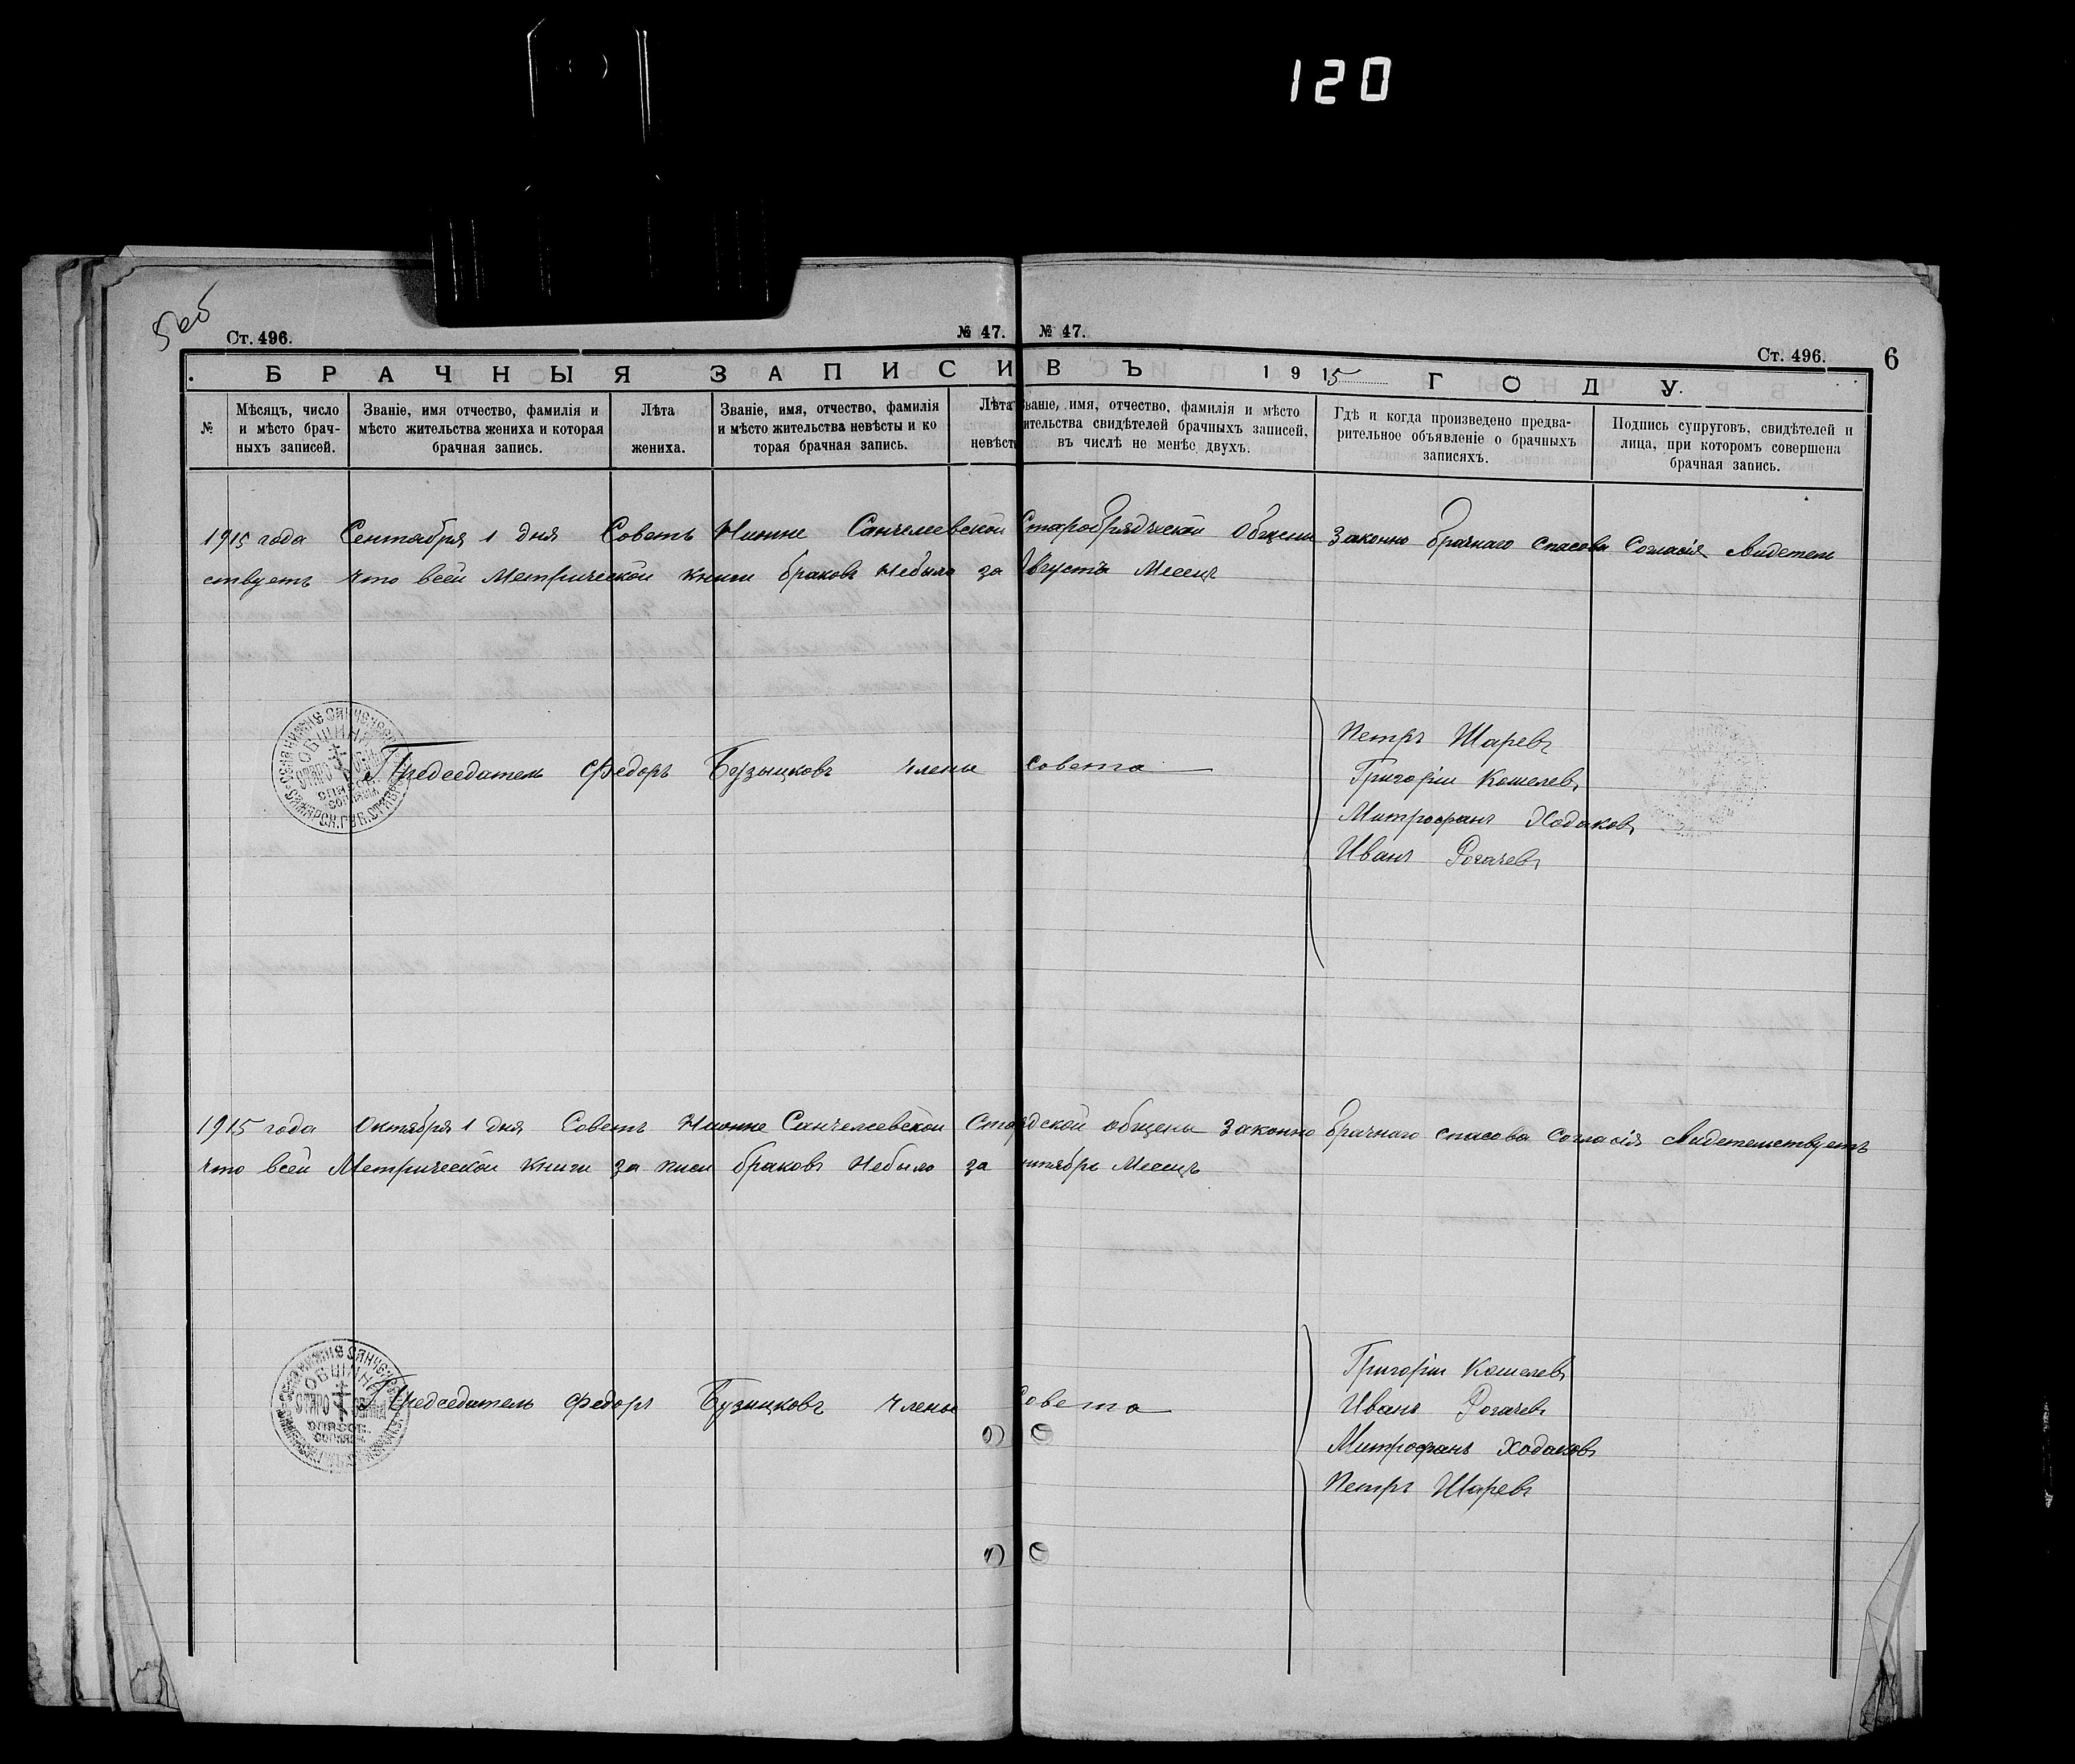 120
5об
Ст. 496.
№ 47.
№ 47.
Ст. 496.
6
БРАЧНЫЯ ЗАПИСИ ВЪ 1915 ГОДУ.
№
Мѣсяцъ, число
и мѣсто брач-
ныхъ записей.
Званіе, имя отчество, фамилія и
мѣсто жительства жениха и которая
брачная запись.
Лѣта
жениха.
Званіе, имя, отчество, фамилія
и мѣсто жительства невѣсты и ко
торая брачная запись.
Лѣта
невѣст
Званіе, имя, отчество, фамилія и мѣсто
жительства свидѣтелей брачныхъ записей,
въ числѣ не менѣе двухъ.
Гдѣ и когда произведено предва-
рительное объявленіе о брачныхъ
записяхъ.
Подпись супруговъ, свидѣтелей и
лица, при которомъ совершена
брачная запись.
1915 года Сентября 1 дня Советъ Нижне Санчелеевской Старобрядческой Общены Законно брачнаго спасова Согласія свидетел
ствуетъ что всей Метрической книги браковъ небыло за Августъ Месецъ
Председатель Федоръ Бузыцковъ члены совета
Петръ Шаревъ
Григоріи Кошелевъ
Митрофанъ Ходаковъ
Иванъ Рогачевъ
ОБЩИНА
1915 года Октября 1 дня Советъ Нижне Санчелеевской Старо дской общены законно брачнаго спасова Согласія свидетелствуетъ
что всей Метрической книги за писи браковъ небыло за ентябрь Месецъ
Председатель Федоръ Бузыцковъ члены совета
Григоріи Кошелевъ
Иванъ Рогачевъ
Митрофанъ Ходаковъ
Петръ Шаревъ
ОБЩИНА